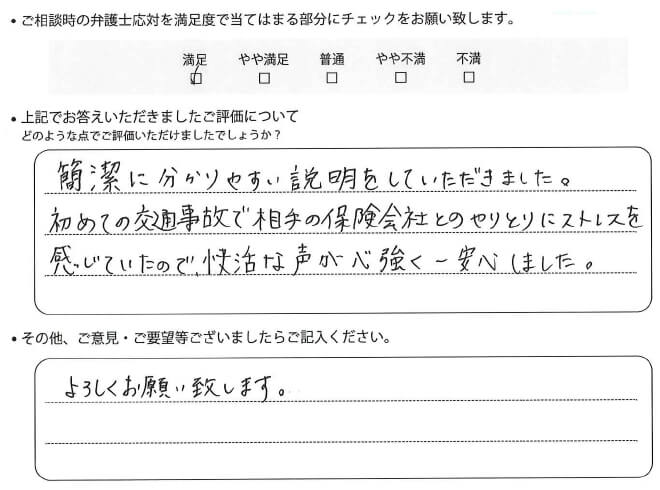 • ご相談時の弁護士応対を満足度で当てはまる部分にチェックをお願い致します。
満足 やや満足 普通 やや不満 不満
☑ □ □ □ □
• 上記でお答えいただきましたご評価について
どのような点でご評価いただけましたでしょうか？
簡潔に分かりやすい説明をしていただきました。
初めての交通事故で相手の保険会社とのやりとりにストレスを
感じていたので、快活な声が心強く一安心しました。
• その他、ご意見・ご要望等ございましたらご記入ください。
よろしくお願い致します。